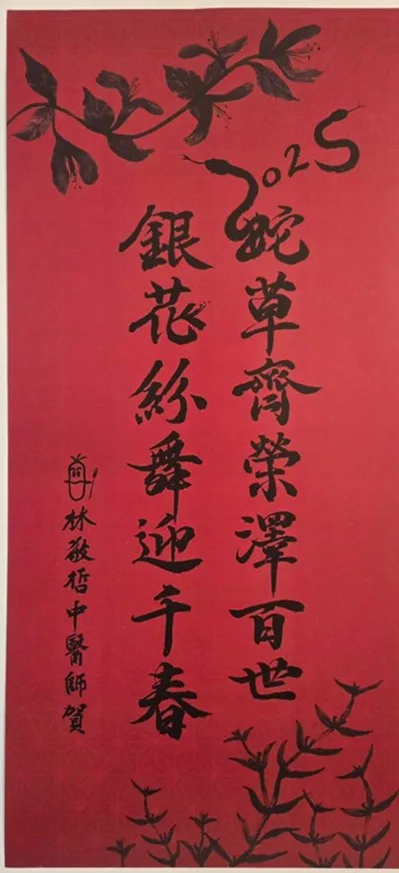 2025
蛇草齊榮澤百世
銀花紛舞迎千春
林敬哲中醫師賀